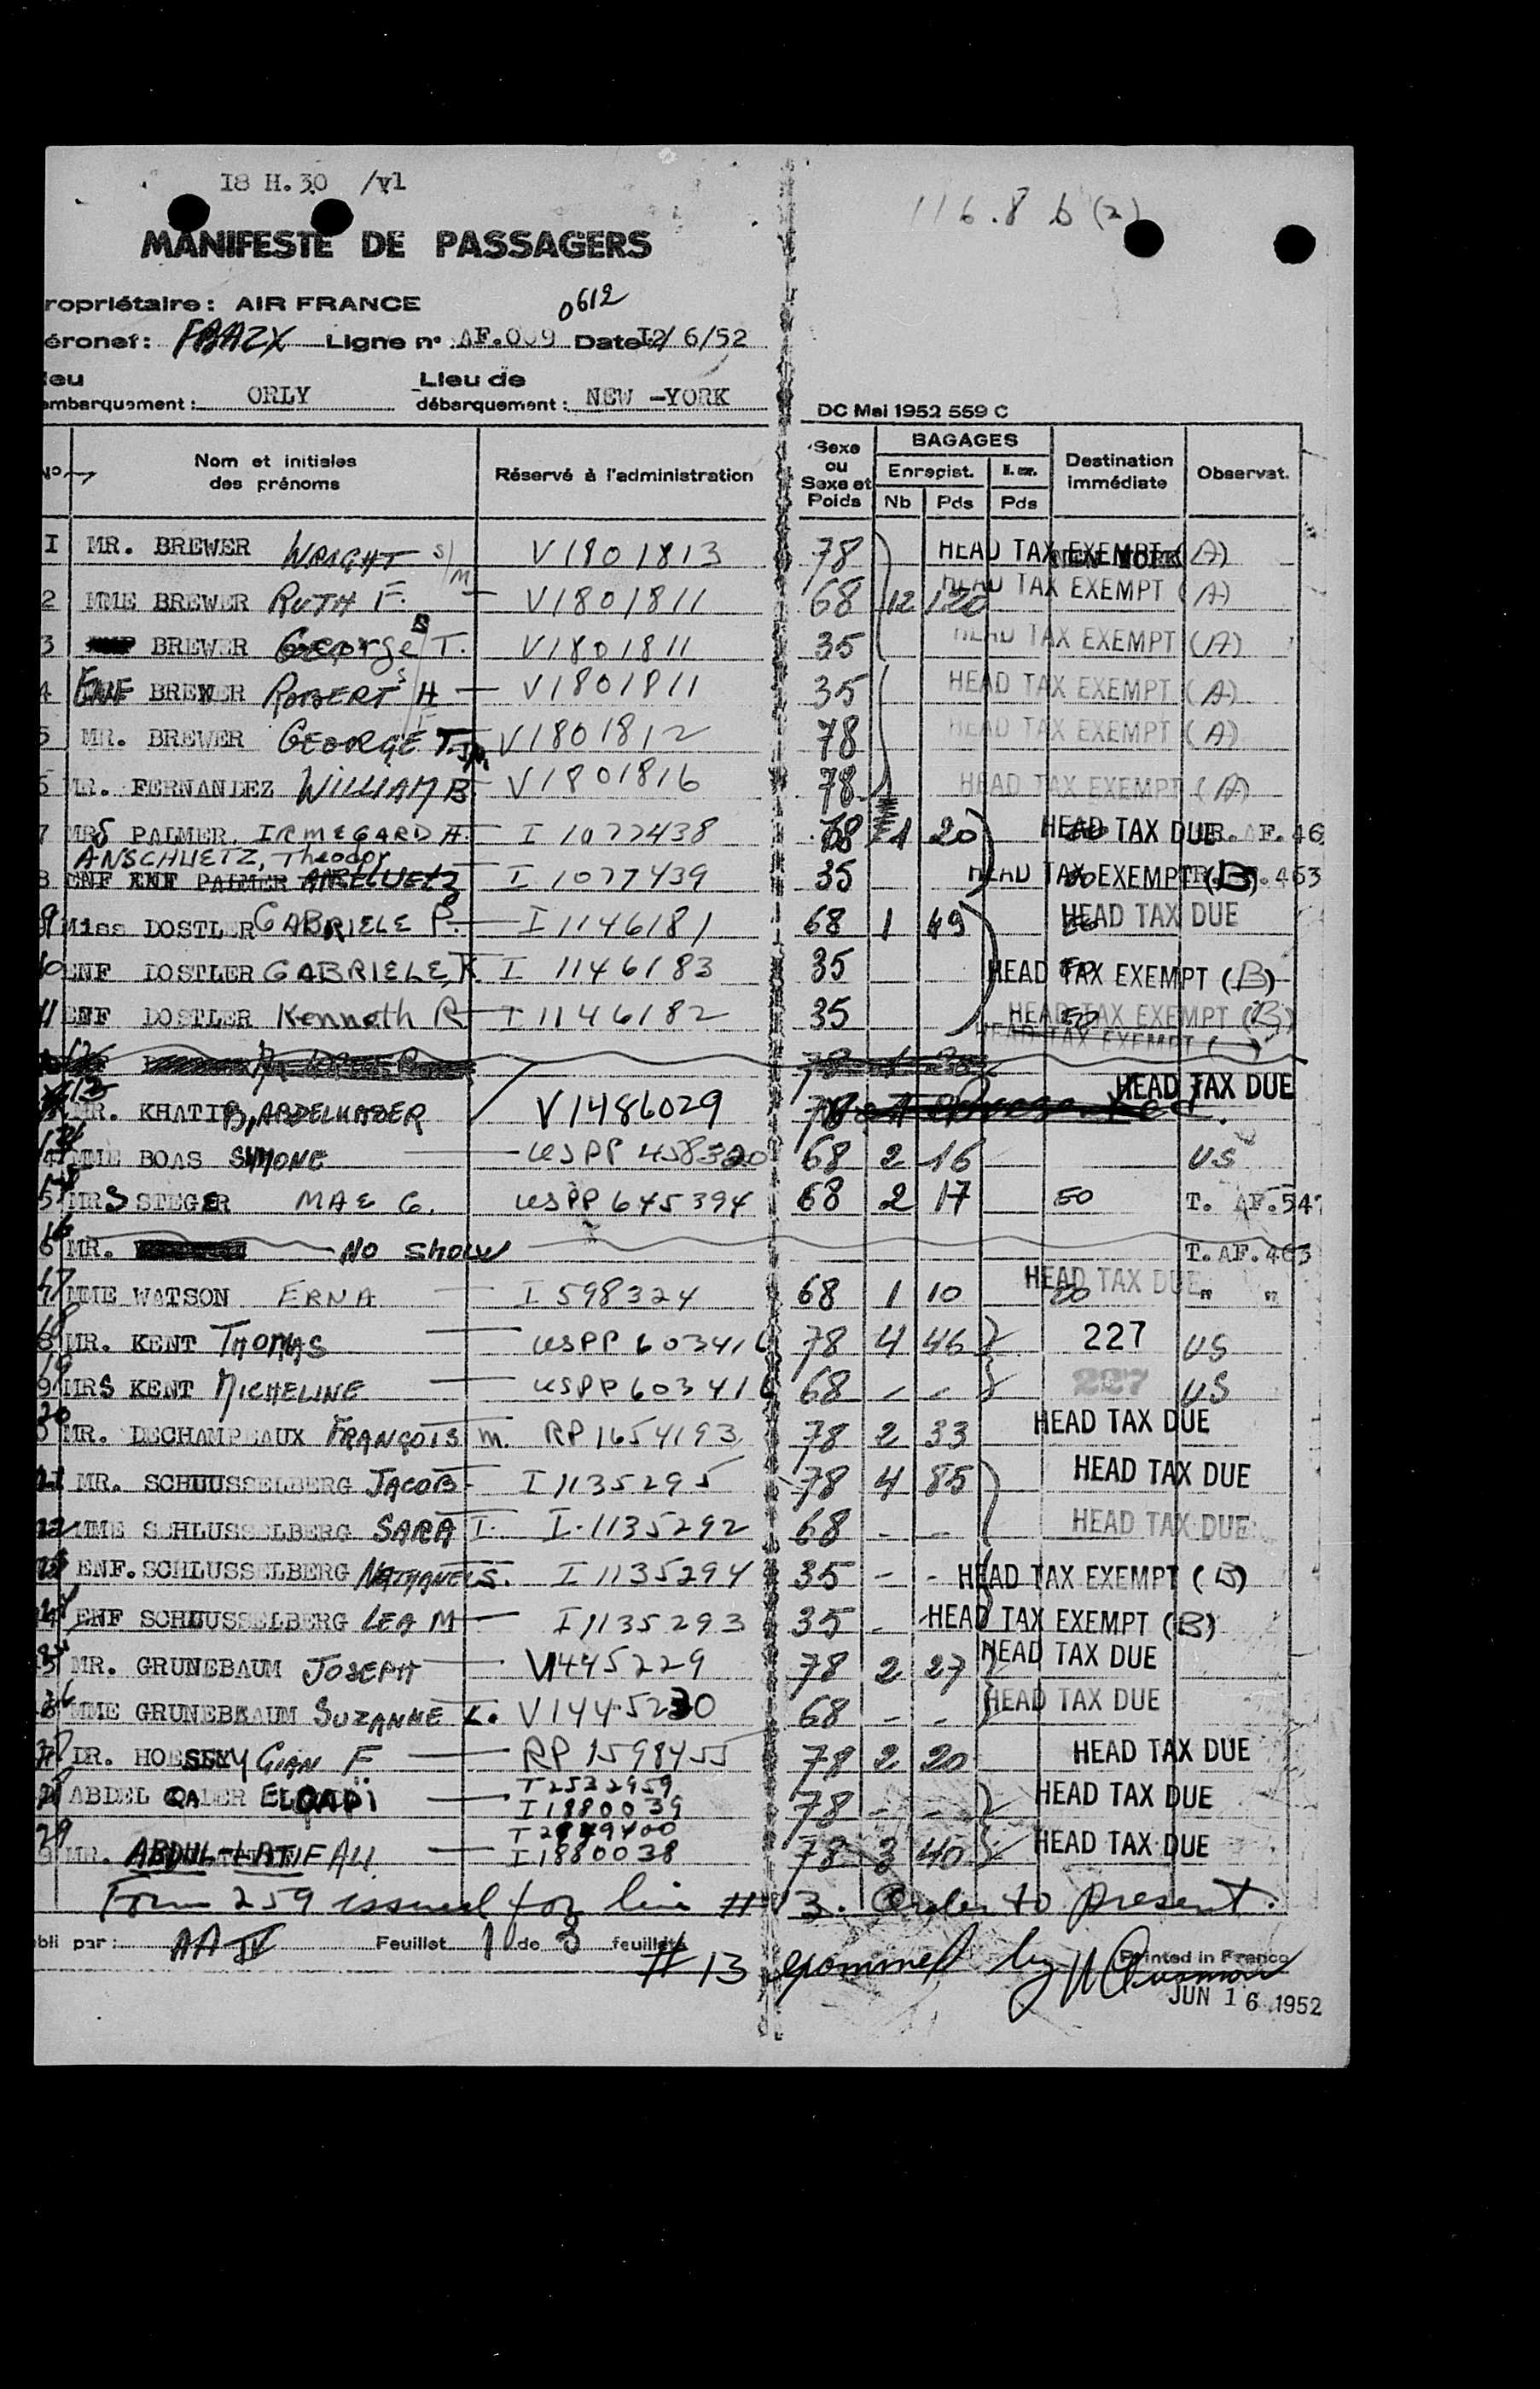 I8 H.30 /vl
116.8 b (2)
MANIFESTE DE PASSAGERS
ropriétaire: AIR FRANCE
0612
éronef: FBAZX Ligne n° AF.009 Date I2/6/52
ieu Lieu de
embarquement: ORLY débarquement: NEW -YORK
DC Mai 1952 559 C
N° Nom et initiales des prénoms Réservé à l'administration Sexe ou Sexe et Poids BAGAGES Enregist. Nb Pds Pds Destination immédiate Observat.
I MR. BREWER WRIGHT S/M V1801813 78 HEAD TAX EXEMPT (A) NEW YORK
2 MME BREWER RUTH F. V1801811 68 12 120 HEAD TAX EXEMPT (A)
3 BREWER George S T. V1801811 35 HEAD TAX EXEMPT (A)
4 ENF BREWER ROBERT S H V1801811 35 HEAD TAX EXEMPT (A)
5 MR. BREWER GEORGE T. V1801812 78 HEAD TAX EXEMPT (A)
6 MR. FERNANDEZ WILLIAM B V1801816 78 HEAD TAX EXEMPT (A)
7 MRS PALMER. IRMEGARD H. I 1077438 68 1 20 HEAD TAX DUE TR. AF. 46
ANSCHUETZ, Theodor
8 ENF ENF PALMER I 1077439 35 HEAD TAX EXEMPT (B) 463
9 Miss DOSTLER GABRIELE P. I 1146181 68 1 49 HEAD TAX DUE
10 ENF DOSTLER GABRIELE, K. I 1146183 35 HEAD TAX EXEMPT (B)
11 ENF DOSTLER Kenneth R I 1146182 35 50 HEAD TAX EXEMPT (B)
HEAD TAX EXEMPT (
13 MR. KHATIB, ABDELKADER V1486029 78 HEAD TAX DUE
14 MME BOAS SIMONE USPP 458320 68 2 16 US
15 MRS STEGER MAE G. USPP 645394 68 2 17 50 T. AF.547
16 MR. NO Show T. AF. 463
17 MME WATSON ERNA I 598324 68 1 10 HEAD TAX DUE " "
18 MR. KENT THOMAS USPP 603416 78 4 46 227 US
19 MRS KENT MICHELINE USPP 603416 68 - - 227 US
20 MR. DECHAMPEAUX FRANÇOIS M. RP 1654193 78 2 33 HEAD TAX DUE
21 MR. SCHLUSSELBERG JACOB I 1135295 78 4 85 HEAD TAX DUE
22 MME SCHLUSSELBERG SARA I. I.1135292 68 - - HEAD TAX DUE
ENF. SCHLUSSELBERG NATHANEL S. I 1135294 35 - - HEAD TAX EXEMPT (B)
24 ENF SCHLUSSELBERG LEA M I 1135293 35 - HEAD TAX EXEMPT (B)
MR. GRUNEBAUM JOSEPH V1445229 78 2 27 HEAD TAX DUE
26 MME GRUNEBAUM SUZANNE I. V1445230 68 - - HEAD TAX DUE
DR. HOESSLY GIAN F RP 1598455 78 2 20 HEAD TAX DUE
28 ABDEL QADER ELQADI T2532959 I1880039 78 - - HEAD TAX DUE
29 MR. ABDUL-LATIF ALI I1880038 78 3 40 HEAD TAX DUE
Form 259 issued for line #13. Order to present.
bli par: AA IV Feuillet 1 de 3 feuillets
#13 by
Printed in France
JUN 16 1952